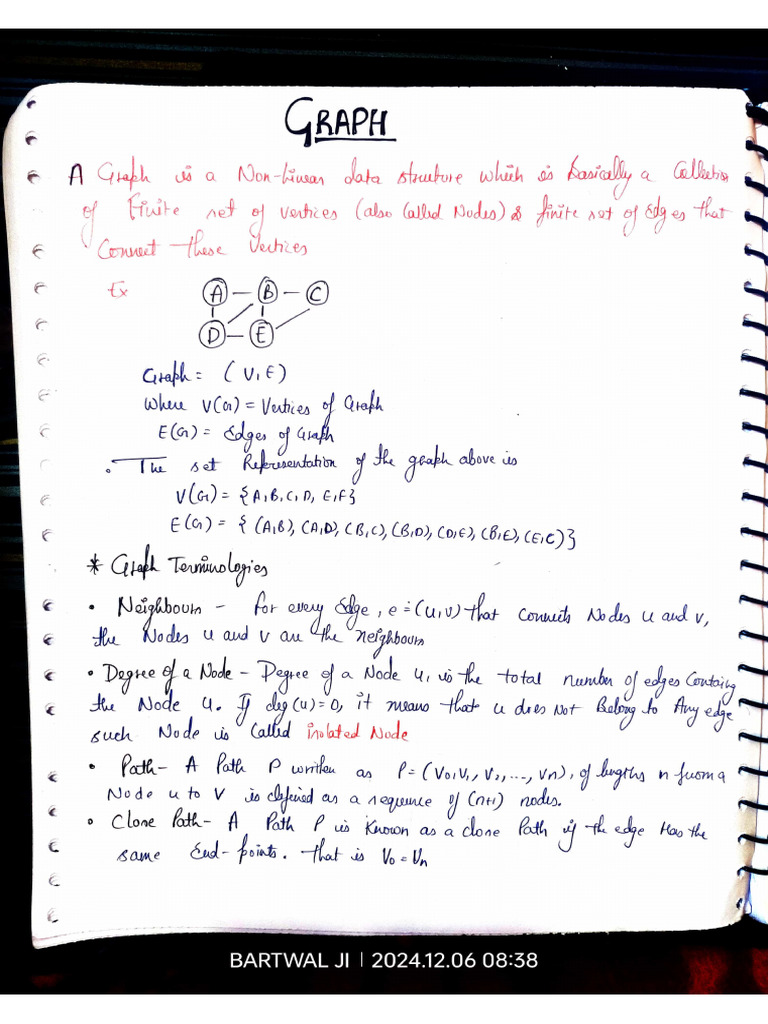 GRAPH
A Graph is a Non-Linear data structure which is basically a Collection
of Finite set of vertices (also Called Nodes) & finite set of Edges that
Connect these Vertices
Ex
A B C
D E
Graph = (V, E)
Where V(G) = Vertices of Graph
E(G) = Edges of Graph
. The set Representation of the graph above is
V(G) = {A, B, C, D, E, F}
E(G) = { (A,B), (A,D), (B,C), (B,D), (D,E), (B,E), (E,C) }
* Graph Terminologies
• Neighbours - for every Edge, e = (u, v) that connects Nodes u and v,
the Nodes u and v are the neighbours
• Degree of a Node - Degree of a Node u, is the total number of edges Containg
the Node u. If deg(u) = 0, it means that u does Not Belong to Any edge
such Node is Called isolated Node
• Path - A Path P written as P = (V0, V1, V2, ..., Vn), of lengths n from a
Node u to V is defined as a sequence of (n+1) nodes.
• Close Path - A Path P is Known as a close Path if the edge Has the
same End-points. That is V0 = Vn
BARTWAL JI | 2024.12.06 08:38